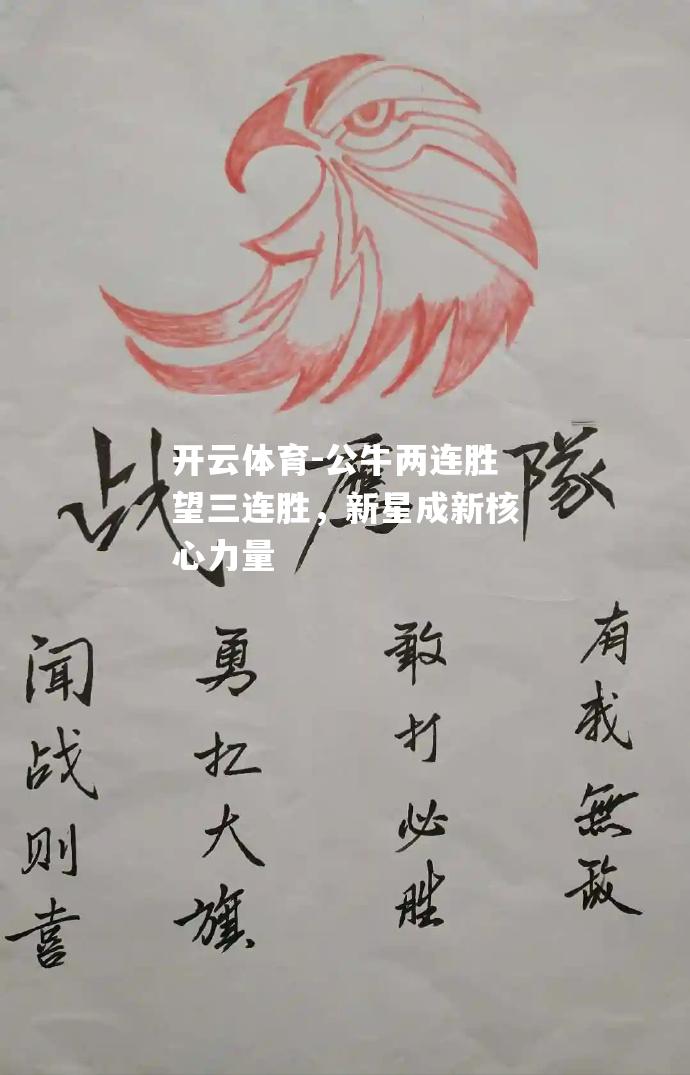 开云体育-公牛两连胜
望三连胜，新星成新核
心力量
战鹰隊
有我無敌
敢打必胜
勇扛大旗
闻战则喜